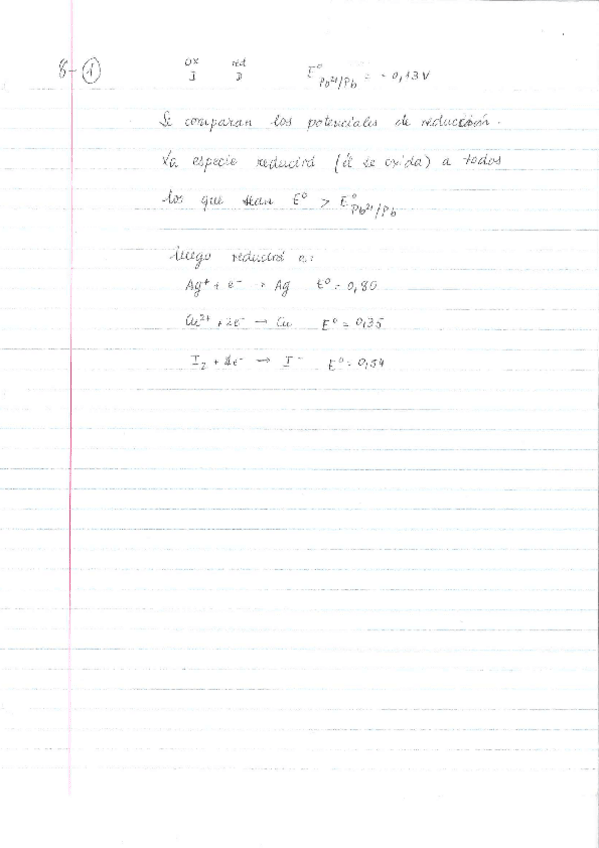 8-①
ox red
I D E°Pb²⁺/Pb = -0,13V
Se comparan los potenciales de reducción.
La especie reducirá (él se oxida) a todos
los que sean E° > E°Pb²⁺/Pb
luego reducirá a:
Ag⁺ + e⁻ → Ag E° = 0,80
Cu²⁺ + 2e⁻ → Cu E° = 0,35
I₂ + e⁻ → I⁻ E° = 0,54